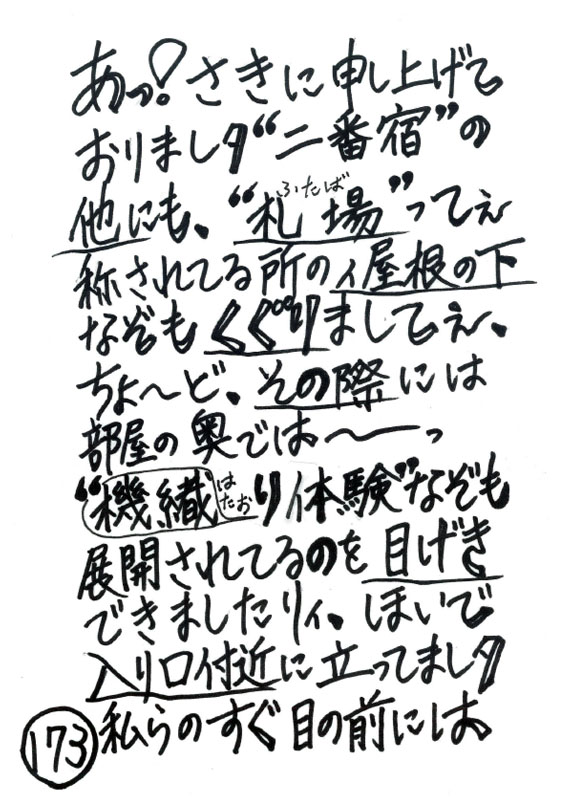 あっ!さきに申し上げて
おりましタ“二番宿”の
他にも、“札場”ってぇ
ふたば
称されてる所のィ屋根の下
なぞもくぐりましてぇ、
ちょ〜ど、その際には
部屋の奥では〜っ
“機織り体験”なぞも
はたお
展開されてるのを目げき
できましたりィ、ほいで
入り口付近に立ってましタ
私らのすぐ目の前には
173